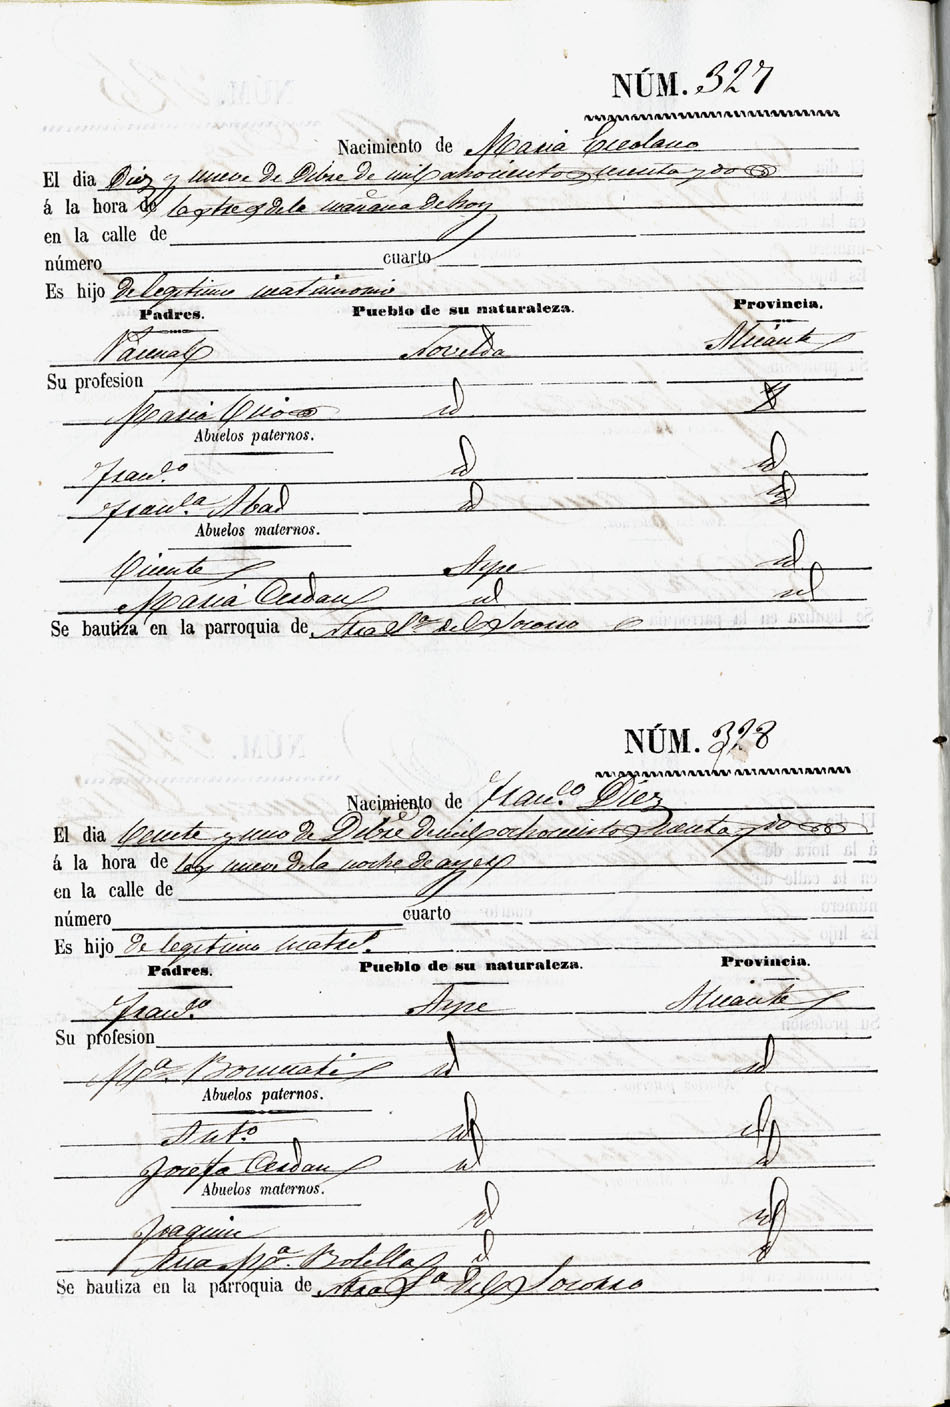 NÚM. 327
Nacimiento de Maria Escolano
El dia Diez y nueve de Dibre de mil ochocientos y dos
á la hora de las tres de la mañana de hoy
en la calle de
número cuarto
Es hijo de legitimo matrimonio
Padres. Pueblo de su naturaleza. Provincia.
Pascual Novelda Alicante
Su profesion
Maria id id
Abuelos paternos.
Franco. id id
Franca. Abad id id
Abuelos maternos.
Vicente Aspe id
Maria Cerdan id id
Se bautiza en la parroquia de Ntra Sra del Socorro
NÚM. 328
Nacimiento de Franco. Diez
El dia Veinte y uno de Dibre de mil ochocientos y dos
á la hora de las nueve de la noche de ayer
en la calle de
número cuarto
Es hijo de legitimo matrº.
Padres. Pueblo de su naturaleza. Provincia.
Franco. Aspe Alicante
Su profesion
Mª. Bormati id id
Abuelos paternos.
Antº id id
Josefa Cerdan id id
Abuelos maternos.
Joaquin id id
Ana Mª. Botella id id
Se bautiza en la parroquia de Ntra Sª del Socorro